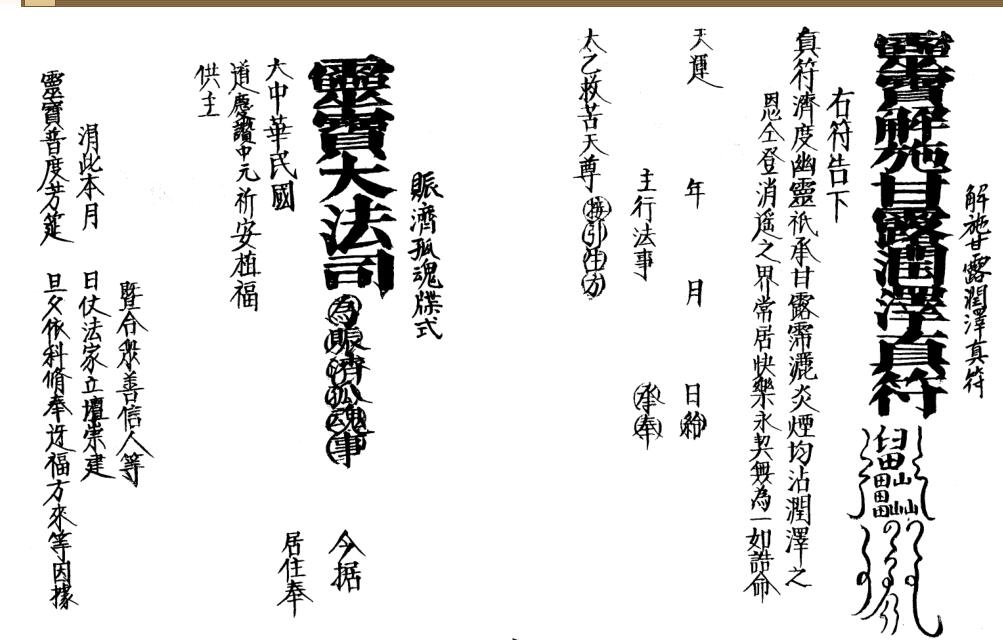 解施甘露潤澤真符
靈寶解施甘露潤澤真符
右符告下
真符濟度幽靈祇承甘露霈灑炎煙均沾潤澤之
恩仝登消遙之界常居快樂永契無為一如誥命
天運 年 月 日給
主行法事 承奉
太乙救苦天尊 接引往方
賑濟孤魂牒式
靈寶大法司為賑濟孤魂事 今据
大中華民國 居住奉
道慶讚中元祈安植福
供主
暨合眾善信人等
涓此本月 日仗法家立壇崇建
靈寶普度芳筵 旦夕依科脩奉迓福方來等因據